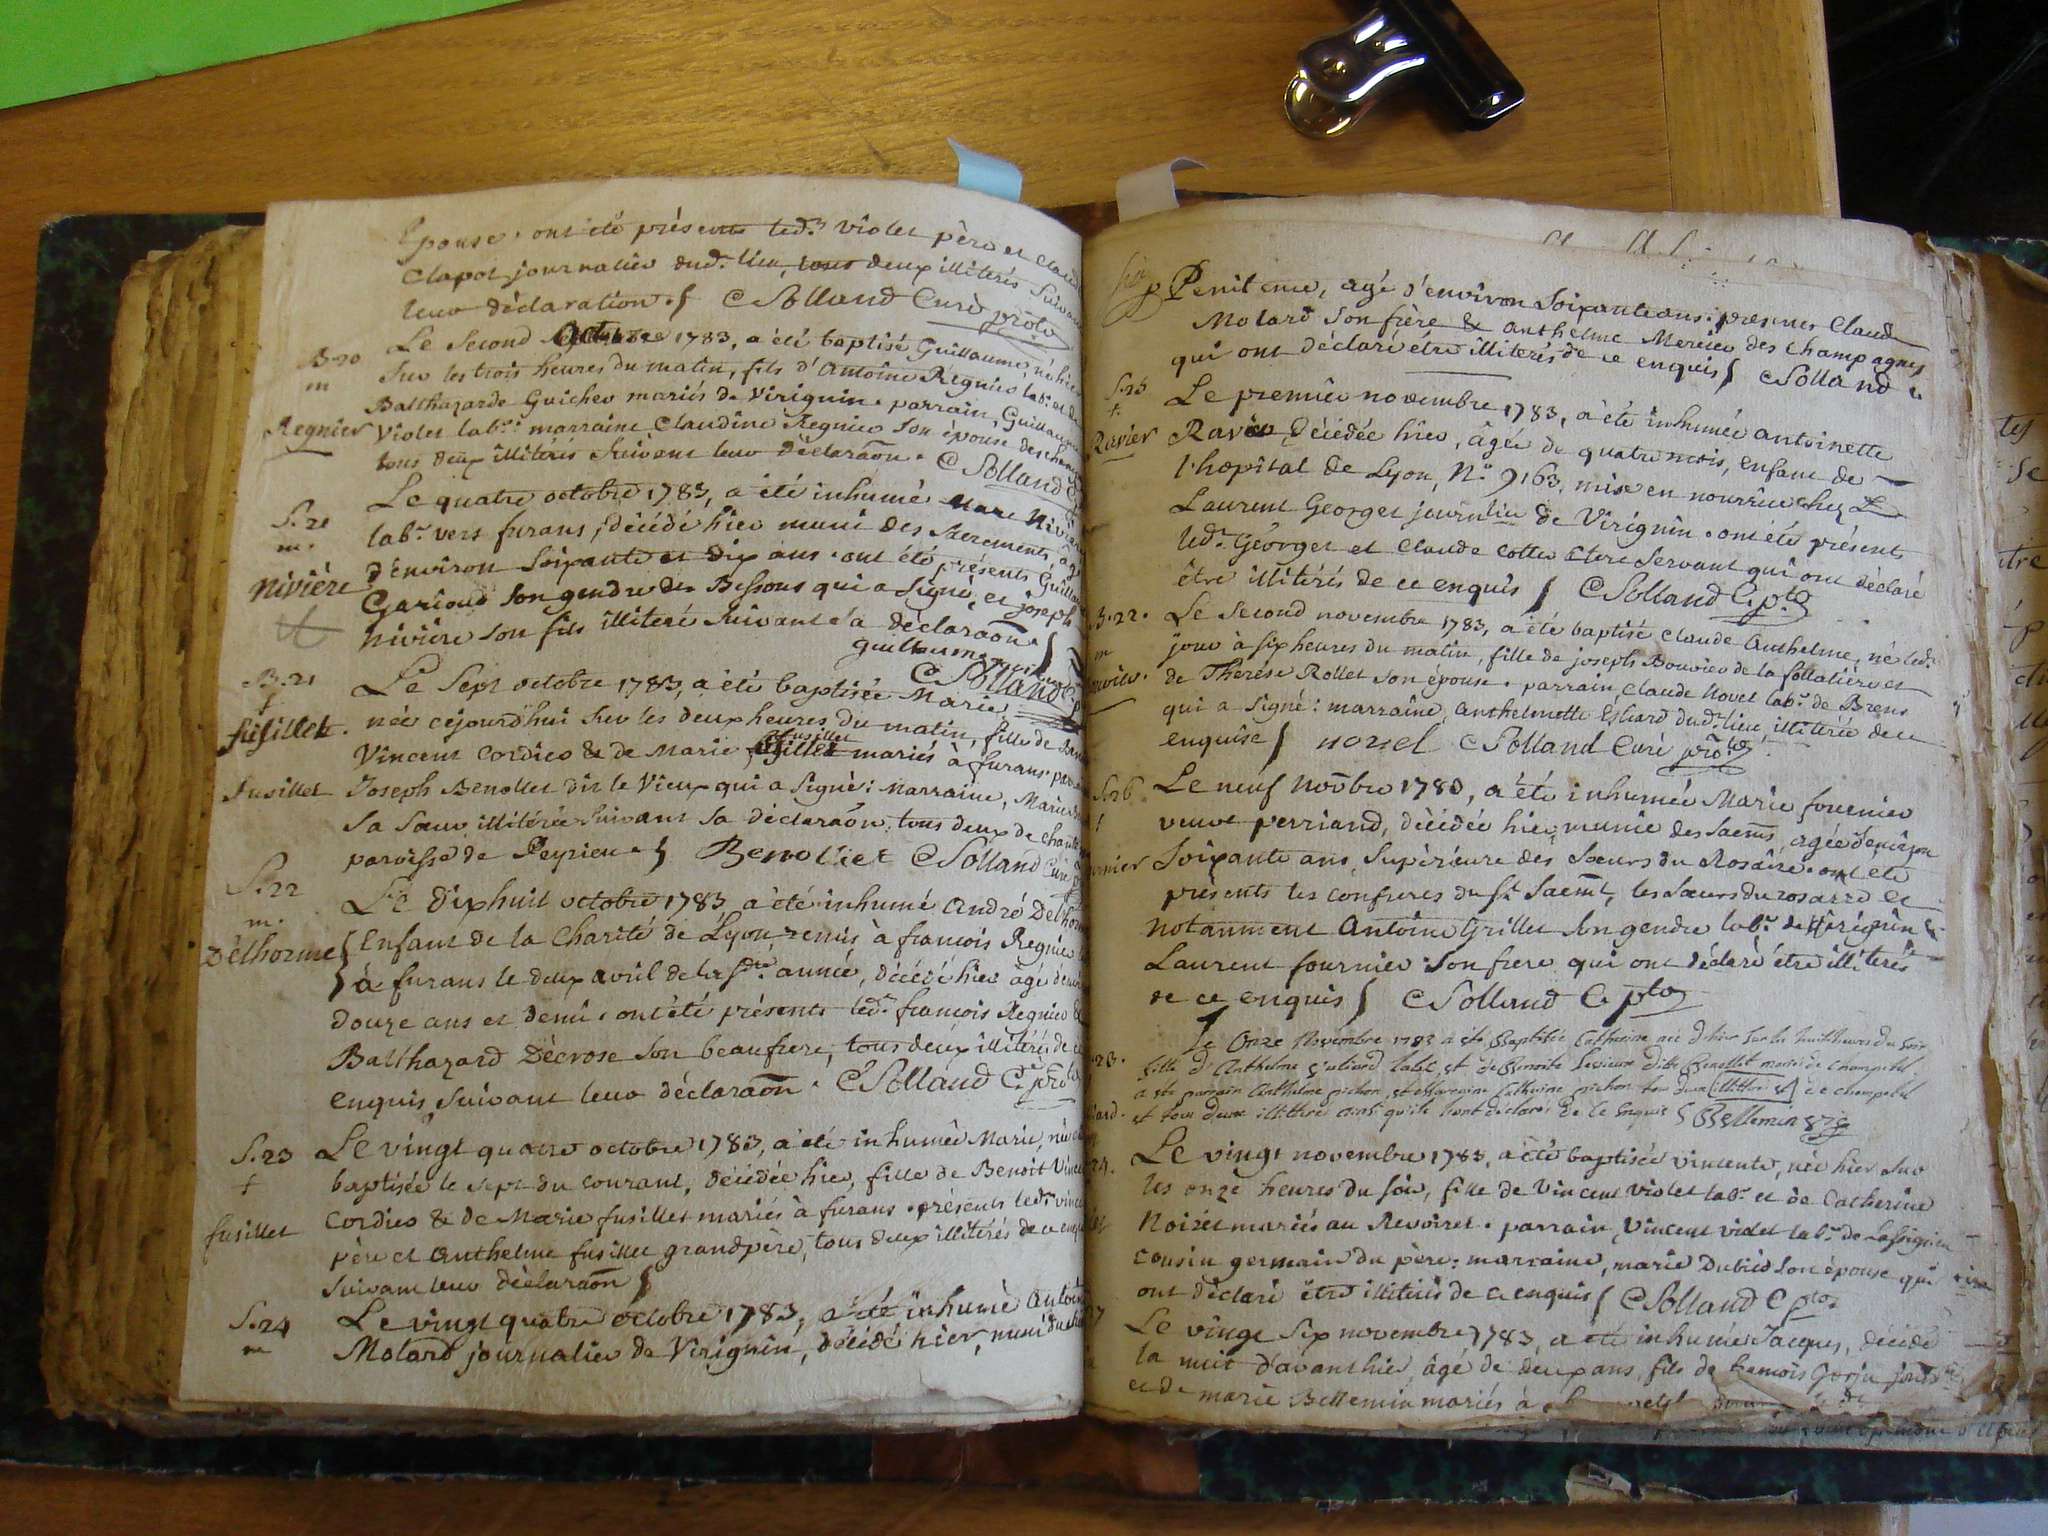 Epouse. ont été présents led.t violet père et claud
Clapot journalier dud. lieu, tous deux illitérés Suivant
leur déclaration. C Solland Curé
B.20
m
Regnier
Le Second octobre 1783, a été baptisé Guillaume, né hier
Sur les trois heures du matin, fils d'Antoine Regnier lab.r et de
Balthazarde Guicher mariés de Virignin. parrain, Guillaume
Violet lab.r: marraine Claudine Regnier Son épouse
tous deux illitérés Suivant leur déclaraõn. C Solland
S.21
m.
Nivière
Le quatre octobre 1783, a été inhumé
lab.r vers furans, décédé hier muni des Sacrements, agé
d'environ Soixante et dix ans. ont été présents Guillaume
Garioud Son gendre des Bessons qui a Signé, et joseph
Nivière son fils illiteré Suivant sa déclaraõn.
C Solland
B.21
f
fusillet.
fusillet
Le Sept octobre 1783, a été baptisée Marie
née cejourd'hui Sur les deux heures du matin, fille de
Vincent Cordier & de Marie fusillet mariés à furans.
Joseph Benollet dit le Vieux qui a Signé: marraine, Marie
Sa Sœur illitérée Suivant Sa déclaraõn, tous deux de
paroisse de Peyrieu. Benolliet C Solland Curé
S.22
m.
Délhorme
Le dixhuit octobre 1783, a été inhumé André Delhorme
Enfant de la Charité de Lyon, remis à francois Regnier
à furans le deux avril de la année, décédé hier âgé denviron
douze ans et demi. ont été présents led.t françois Regnier &
Balthazard Décrose Son beaufrere, tous deux illitérés de ce
enquis, Suivant leur déclaraõn. C Solland C.
S.23
f
fusillet
Le vingt quatre octobre 1783, a été inhumée Marie, née et
baptisée le sept du courant, décédée hier, fille de Benoit Vincent
Cordier & de Marie fusillet mariés à furans. présents led.t vincent
père et Anthelme fusillet grandpère, tous deux illitérés de ce enquis
Suivant leur déclaraõn
S.24
m
Le vingt quatre octobre 1783, a été inhumé Antoine
Molard journalier de Virignin, décédé hier, muni du
Penitence, agé d'environ Soixante ans. présents Claude
Molard Son frère & anthelme Mercier des Champagnes
qui ont déclaré être illiterés de ce enquis C Solland C.
S.25
f.
Ravier
Le premier novembre 1783, a été inhumée antoinette
Ravier décédée hier, âgée de quatre mois, enfant de
l'hopital de Lyon, N.o 9163, mise en nourrice chez
Laurent Georget journalier de Virignin. ont été présents
led.t Georget et Claude Collet Clerc Servant qui ont déclaré
être illitérés de ce enquis C Solland C. p.to
B.22.
m
Le Second novembre 1783, a été baptisé Claude Anthelme, né led.t
jour à six heures du matin, fille de joseph Bouvier de la follatière et
de Therése Rollet Son épouse. parrain, Claude Novel lab.r de Brens
qui a Signé: marraine, Anthelmette dud. lieu, illitérée de ce
enquise novel C Solland Curé
S.26
f
Le neuf Novbre 1783, a été inhumée Marie fournier
veuve perriand, décédée hier, munie des Sacem.ts, agée d'environ
Soixante ans, Supérieure des Sœurs du Rosaire. ont été
présents les confreres du St. Sacemt, les Sœurs du rosaire et
notamment Antoine Grillet Son gendre lab.r de Virignin &
Laurent fournier Son frere qui ont déclaré être illiterés
de ce enquis C Solland C. p.to
23.
Le Onze Novembre 1783 a été Baptisée Catherine née d'hier sur les huit heures du soir
fille d'Anthelme Juliard lab.r et de Benoite ditte Benollet mariés de champetel
a été parrain Anthelme pichon, et Marraine Catherine pichon de champetel
et tous deux illitérés ainsi qu'ils l'ont déclaré de ce Enquis Bellemin
24.
Le vingt novembre 1783, a été baptisée vincente, née hier Sur
les onze heures du soir, fille de Vincent Violet lab.r et de Catherine
Noizet mariés au Revoiret. parrain, Vincent violet lab.r de
cousin germain du père: marraine, marie Dubied Son épouse qui
ont déclaré être illitérés de ce enquis C Solland C p.to
27
Le vingt Six novembre 1783, a été inhumé Jacques, décédé
la nuit d'avant hier, âgé de deux ans, fils de francois Gorju
et de marie Bellemin mariés à